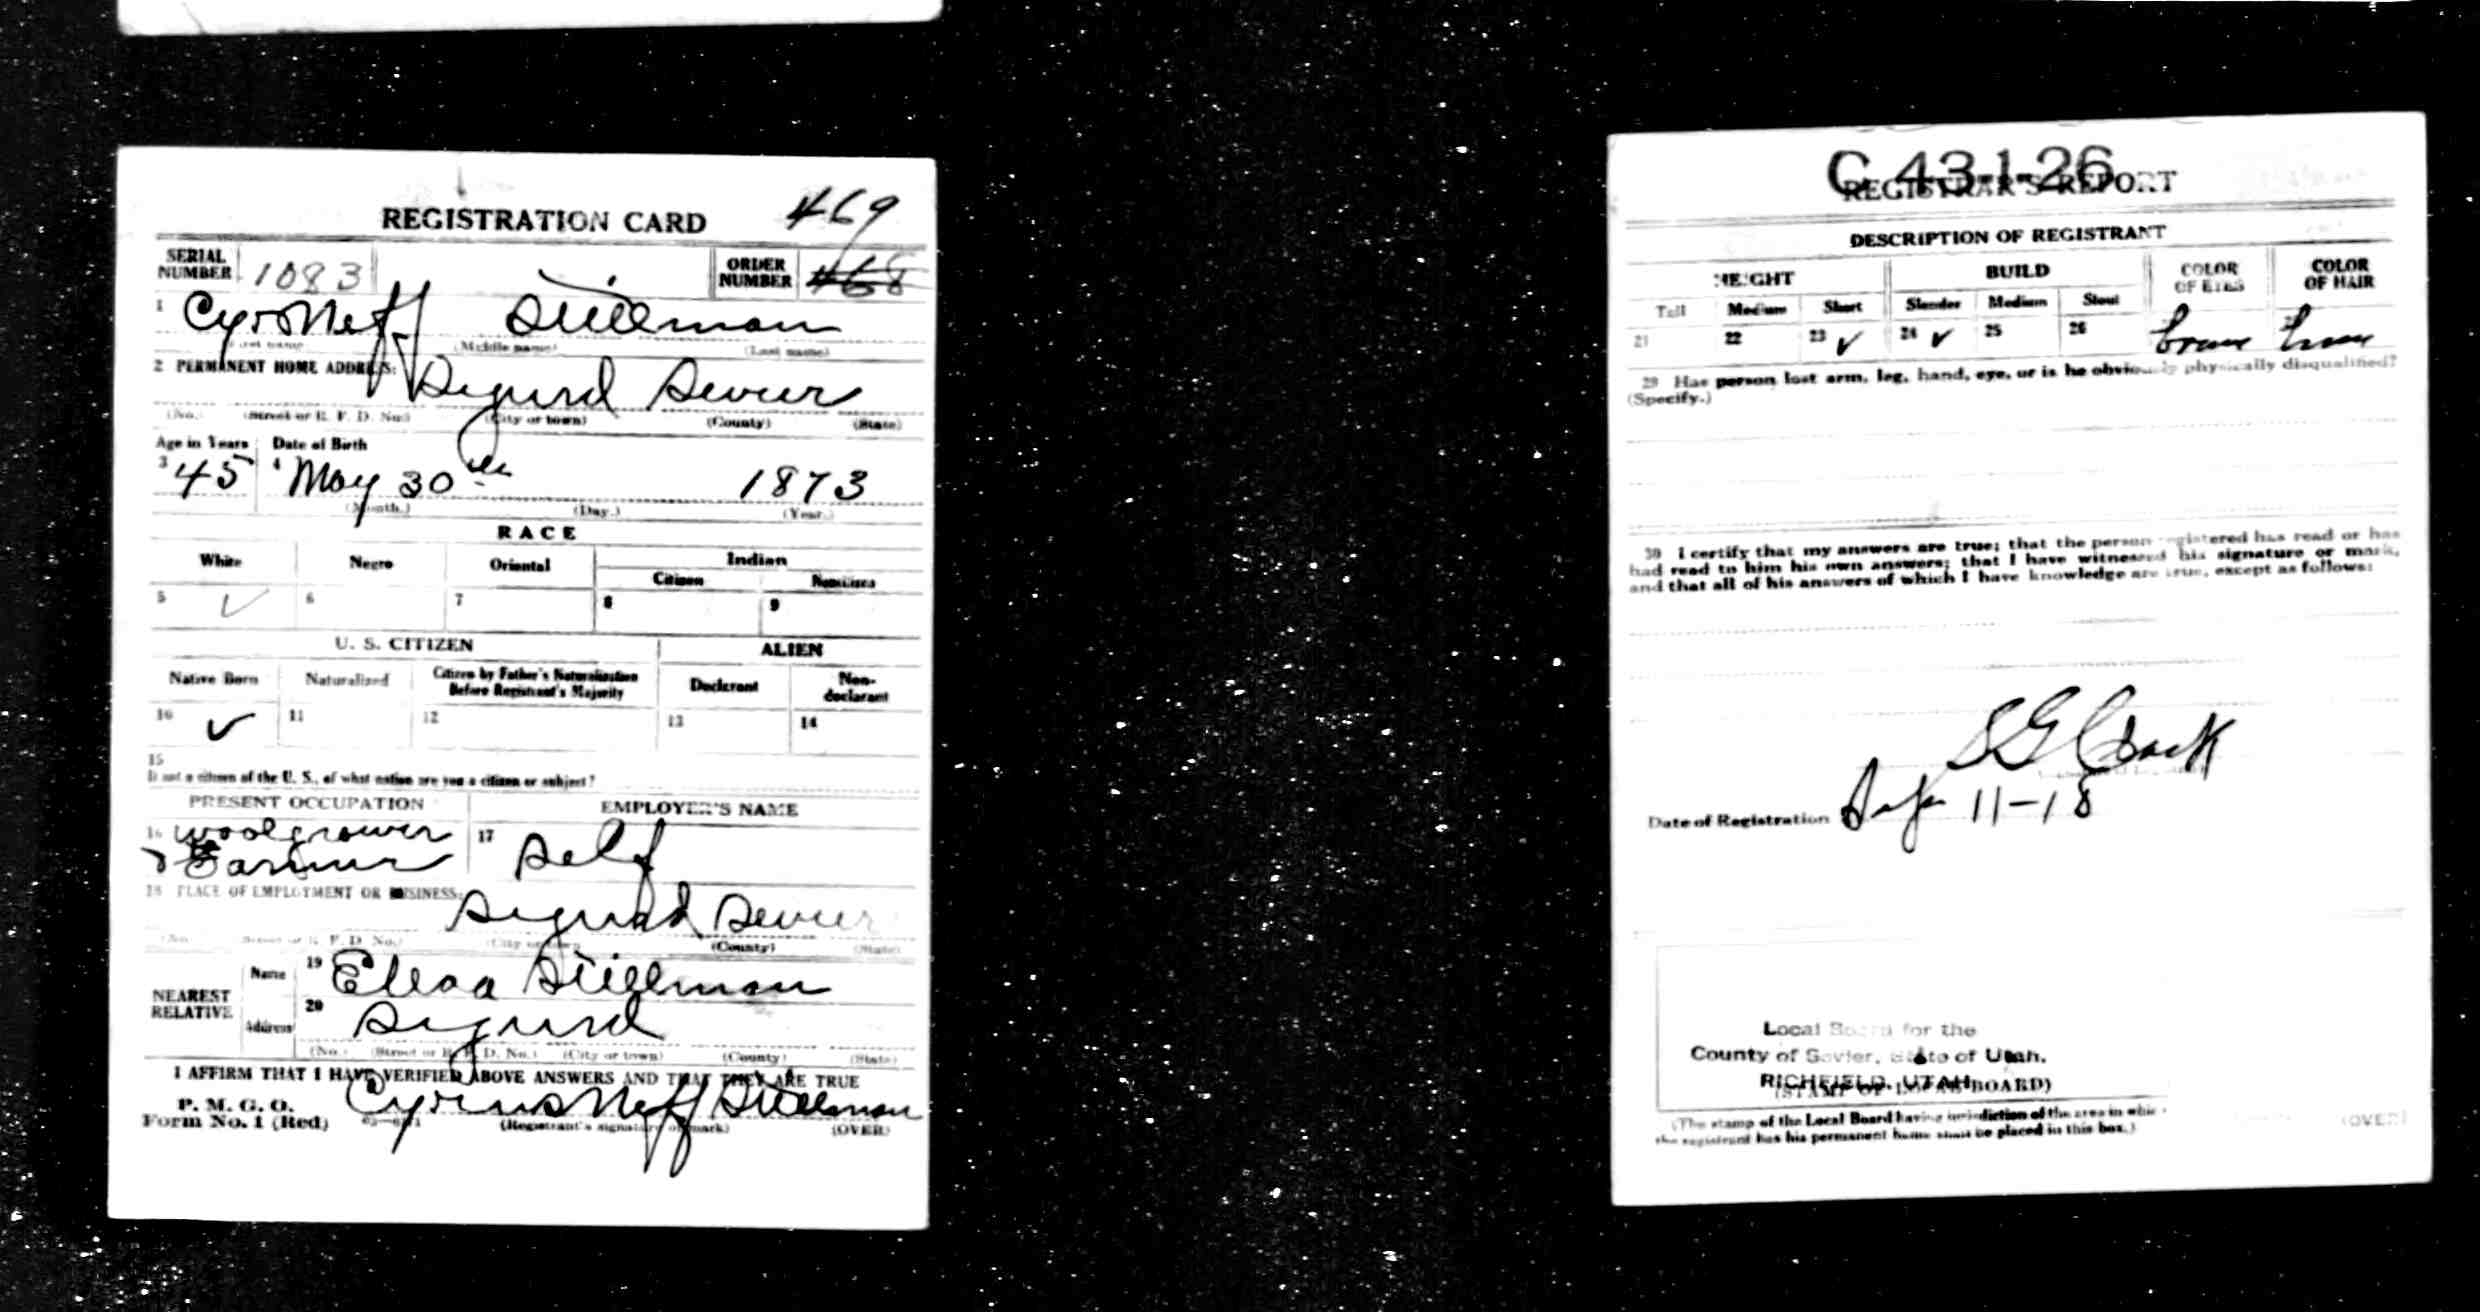 REGISTRATION CARD 469
SERIAL NUMBER 1083 ORDER NUMBER 468
1 Cyrs Neff Stillman
(First name) (Middle name) (Last name)
2 PERMANENT HOME ADDRESS:
Sigurd Sevier
(No.) (Street or R. F. D. No.) (City or town) (County) (State)
Age in Years Date of Birth
3 45 4 May 30th 1873
(Month.) (Day.) (Year.)
RACE
White Negro Oriental Indian
Citizen Noncitizen
5 ✓ 6 7 8 9
U. S. CITIZEN ALIEN
Native Born Naturalized Citizen by Father's Naturalization Before Registrant's Majority Declarant Non-declarant
10 ✓ 11 12 13 14
15
If not a citizen of the U. S., of what nation are you a citizen or subject?
PRESENT OCCUPATION EMPLOYER'S NAME
16 woolgrower 17 Self
& Farmer
18 PLACE OF EMPLOYMENT OR BUSINESS:
Sigurd Sevier
(No.) (Street or R. F. D. No.) (City or town) (County) (State)
NEAREST RELATIVE
Name 19 Stillman
Address 20 Sigurd
(No.) (Street or R. F. D. No.) (City or town) (County) (State)
I AFFIRM THAT I HAVE VERIFIED ABOVE ANSWERS AND THAT THEY ARE TRUE
P. M. G. O.
Form No. 1 (Red) Cyrus Neff Stillman
(Registrant's signature or mark) (OVER)
C 43-1-26
REGISTRAR'S REPORT
DESCRIPTION OF REGISTRANT
HEIGHT BUILD COLOR OF EYES COLOR OF HAIR
Tall Medium Short Slender Medium Stout
21 22 23 ✓ 24 ✓ 25 26 brown brown
29 Has person lost arm, leg, hand, eye, or is he obviously physically disqualified?
(Specify.)
30 I certify that my answers are true; that the person registered has read or has
had read to him his own answers; that I have witnessed his signature or mark,
and that all of his answers of which I have knowledge are true, except as follows:
Date of Registration Sep 11-18
Local Board for the
County of Sevier, State of Utah.
RICHFIELD, UTAH
(STAMP OF LOCAL BOARD)
(The stamp of the Local Board having jurisdiction of the area in which
the registrant has his permanent home shall be placed in this box.)
(OVER)